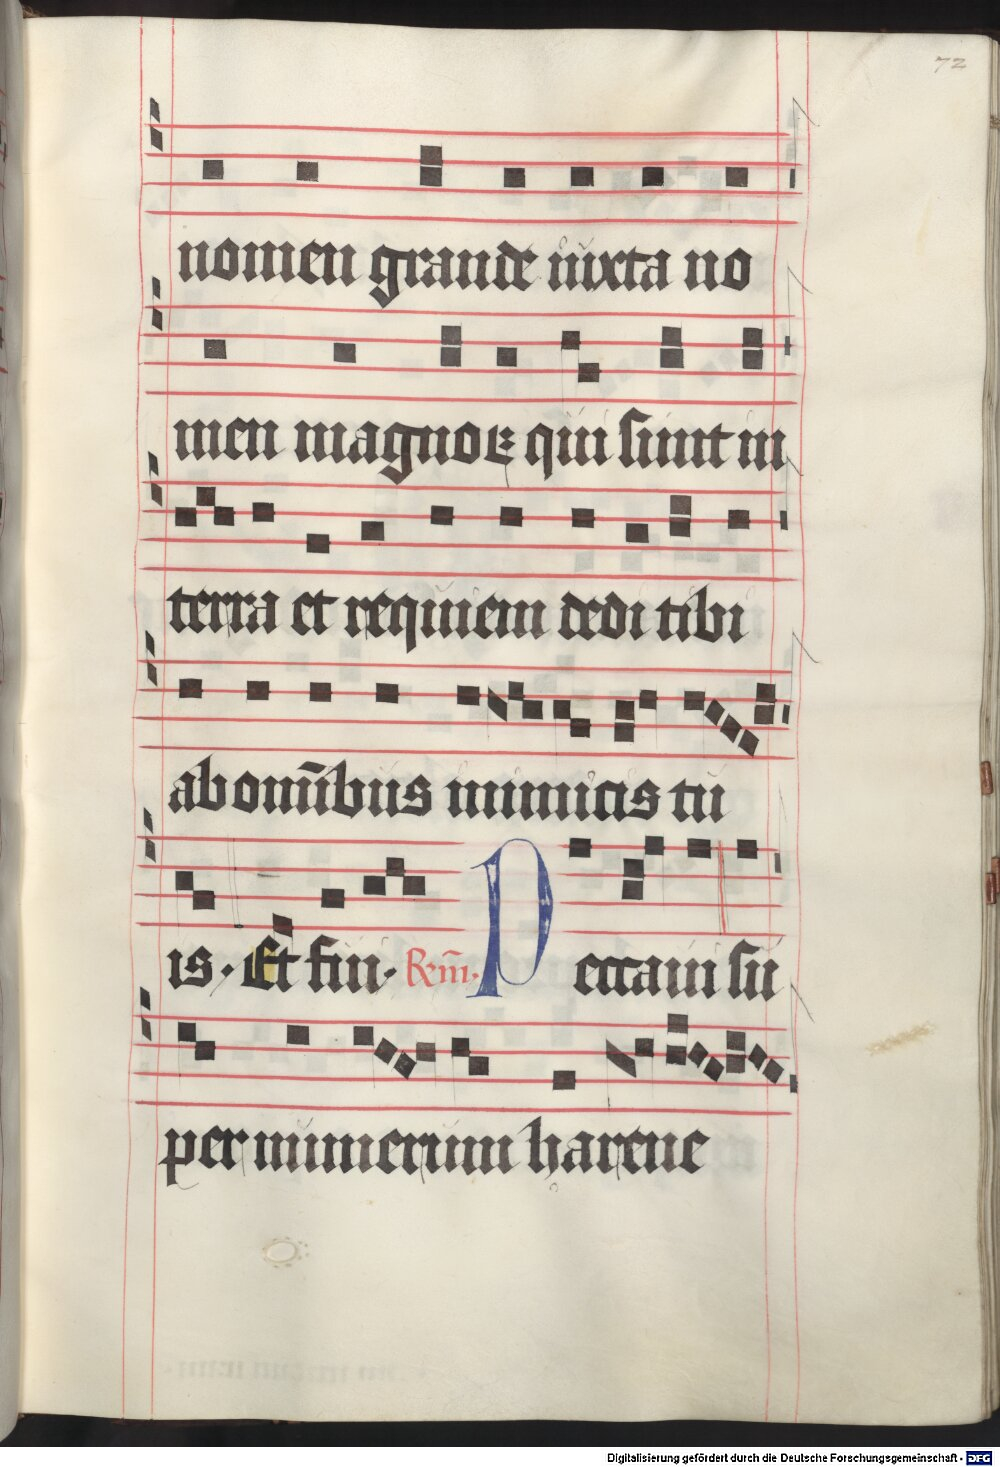 72
nomen grande iuxta no
men magnoꝝ qui sunt in
terra et requiem dedi tibi
ab omībus inimicis tu
is · Et fui · Rm̄ · Peccaui sū
per numerum harene
Digitalisierung gefördert durch die Deutsche Forschungsgemeinschaft - DFG